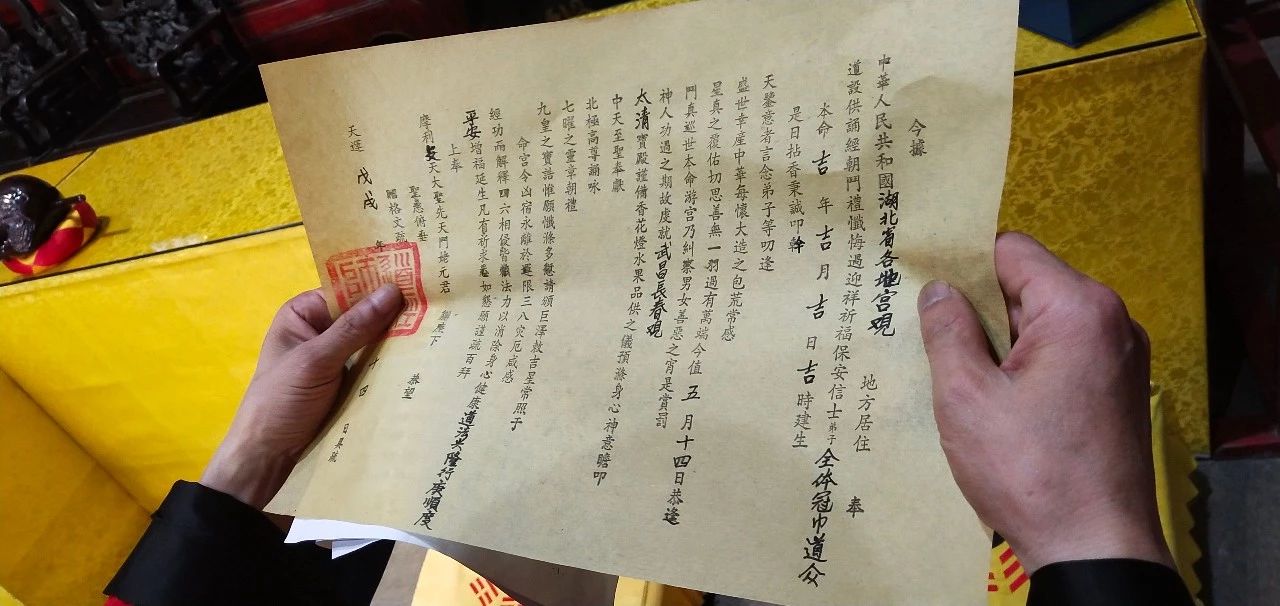 今據
中華人民共和國湖北省各地宫觀 地方居住 奉
道設供誦經朝鬥禮懺悔過迎祥祈福保安信士弟子全体冠巾道众
本命吉年吉月吉日吉時建生
是日拈香秉誠叩幹
天鑒意者言念弟子等叨逢
盛世幸産中華每懷大造之包荒常感
星真之覆佑切思善無一羽過有萬端今值五月十四日恭逢
鬥真巡世本命游宫乃糾察男女善惡之宵是賞罰
神人功過之期故虔就武昌長春觀
太清寶殿謹備香花燈水果品供之儀預滌身心神意瞻叩
中天至聖奉獻
北極高尊誦咏
七曜之靈章朝禮
九皇之寶誥惟願懺滌多愆請頒巨澤敕吉星常照于
命宫令凶宿永離於運限三八灾厄咸
經功而解釋四六相侵皆懺法力以消除身心健康道法兴隆行廣順度
平安增福延生凡有祈求悉如懇願謹疏百拜
上奉
摩利支天大聖先天鬥姥元君 下
聖慈俯垂 恭望
天運戊戌年 日具疏